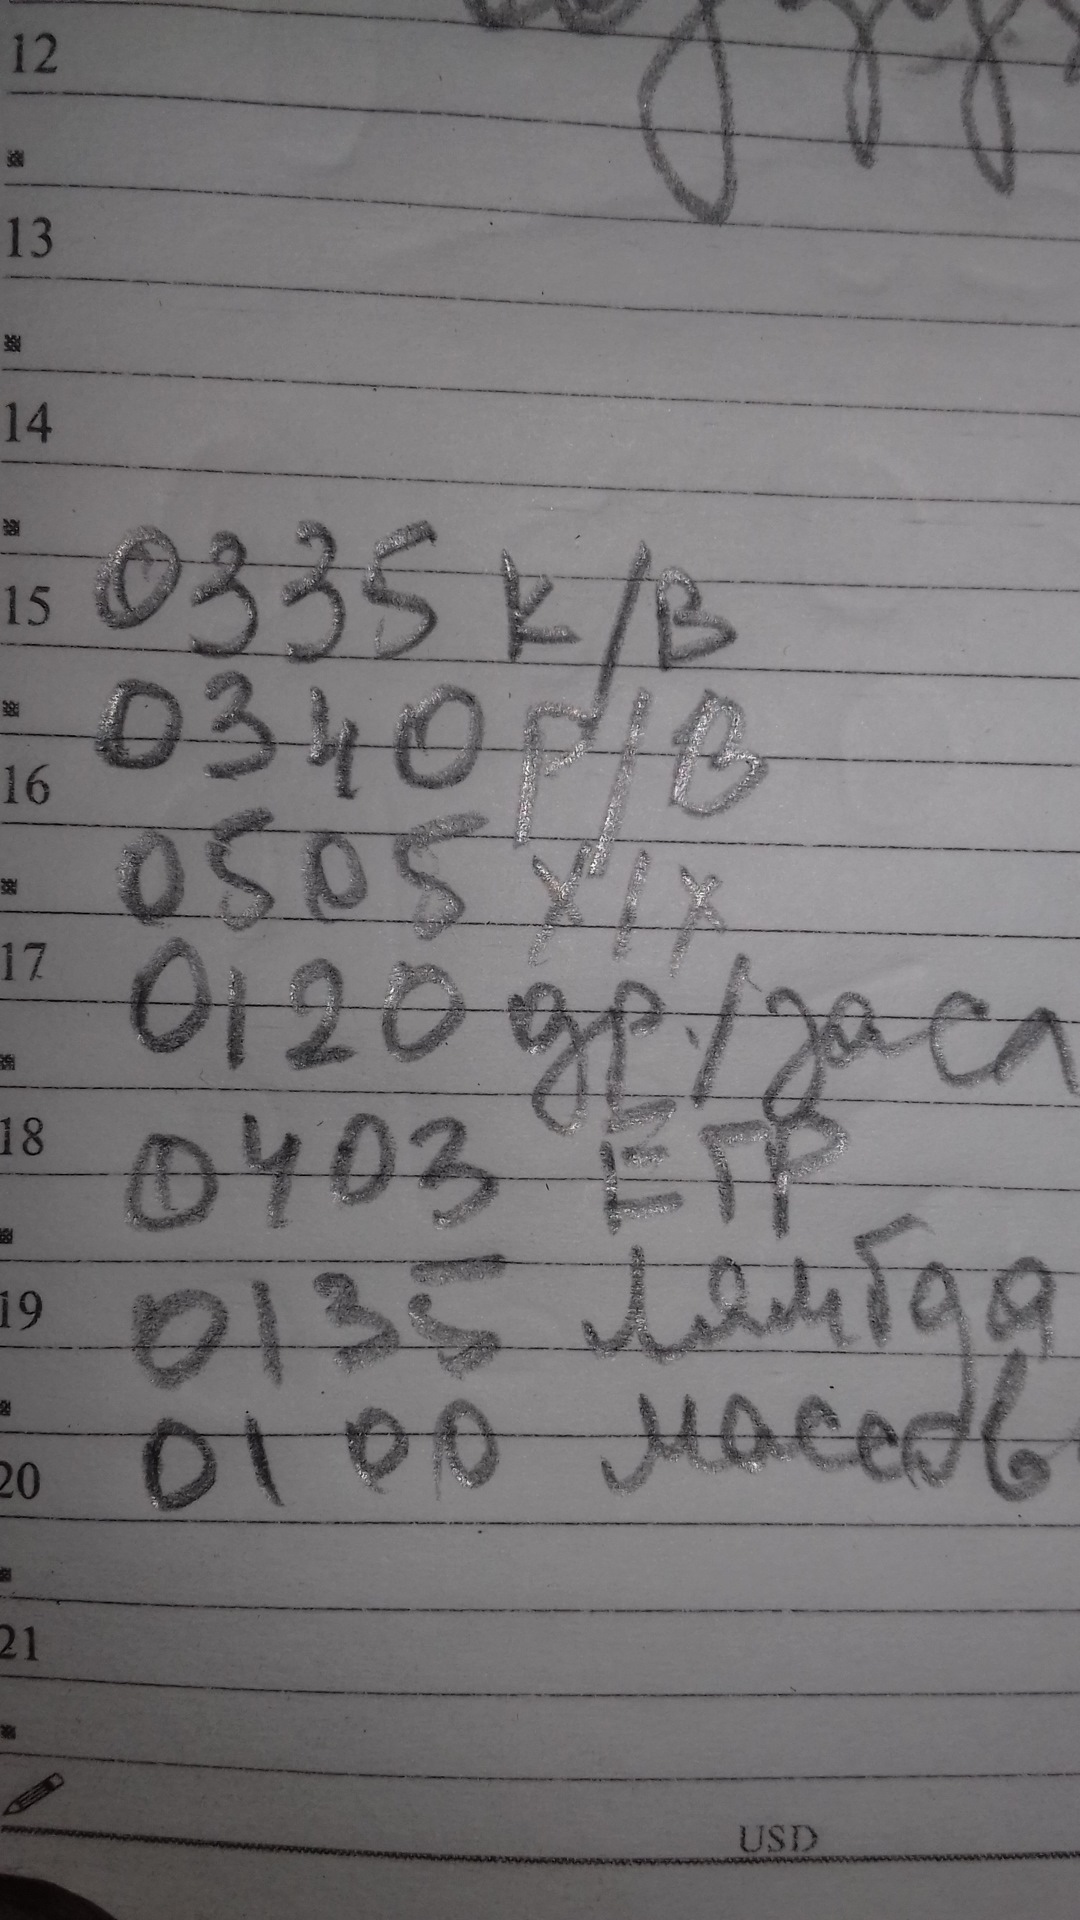 12
13
14
15 0335 к/в
16 0340 р/в
0505 х/х
17 0120 др./засл
18 0403 ЕГР
19 0135 лямбда
20 0100 массов
21
USD